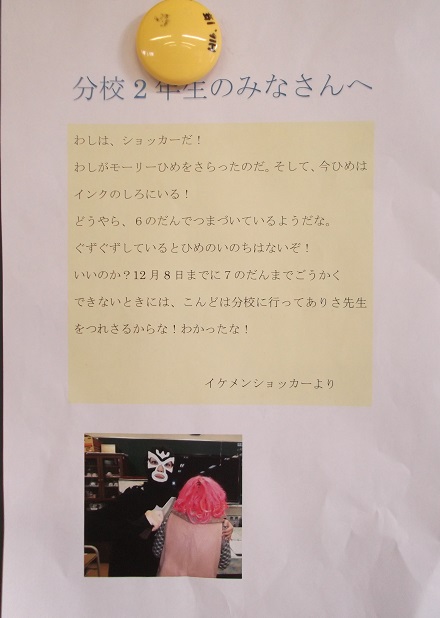 分校2年生のみなさんへ
わしは、ショッカーだ!
わしがモーリーひめをさらったのだ。そして、今ひめは
インクのしろにいる!
どうやら、6のだんでつまづいているようだな。
ぐずぐずしているとひめのいのちはないぞ!
いいのか?12月8日までに7のだんまでごうかく
できないときには、こんどは分校に行ってありさ先生
をつれさるからな!わかったな!
イケメンショッカーより